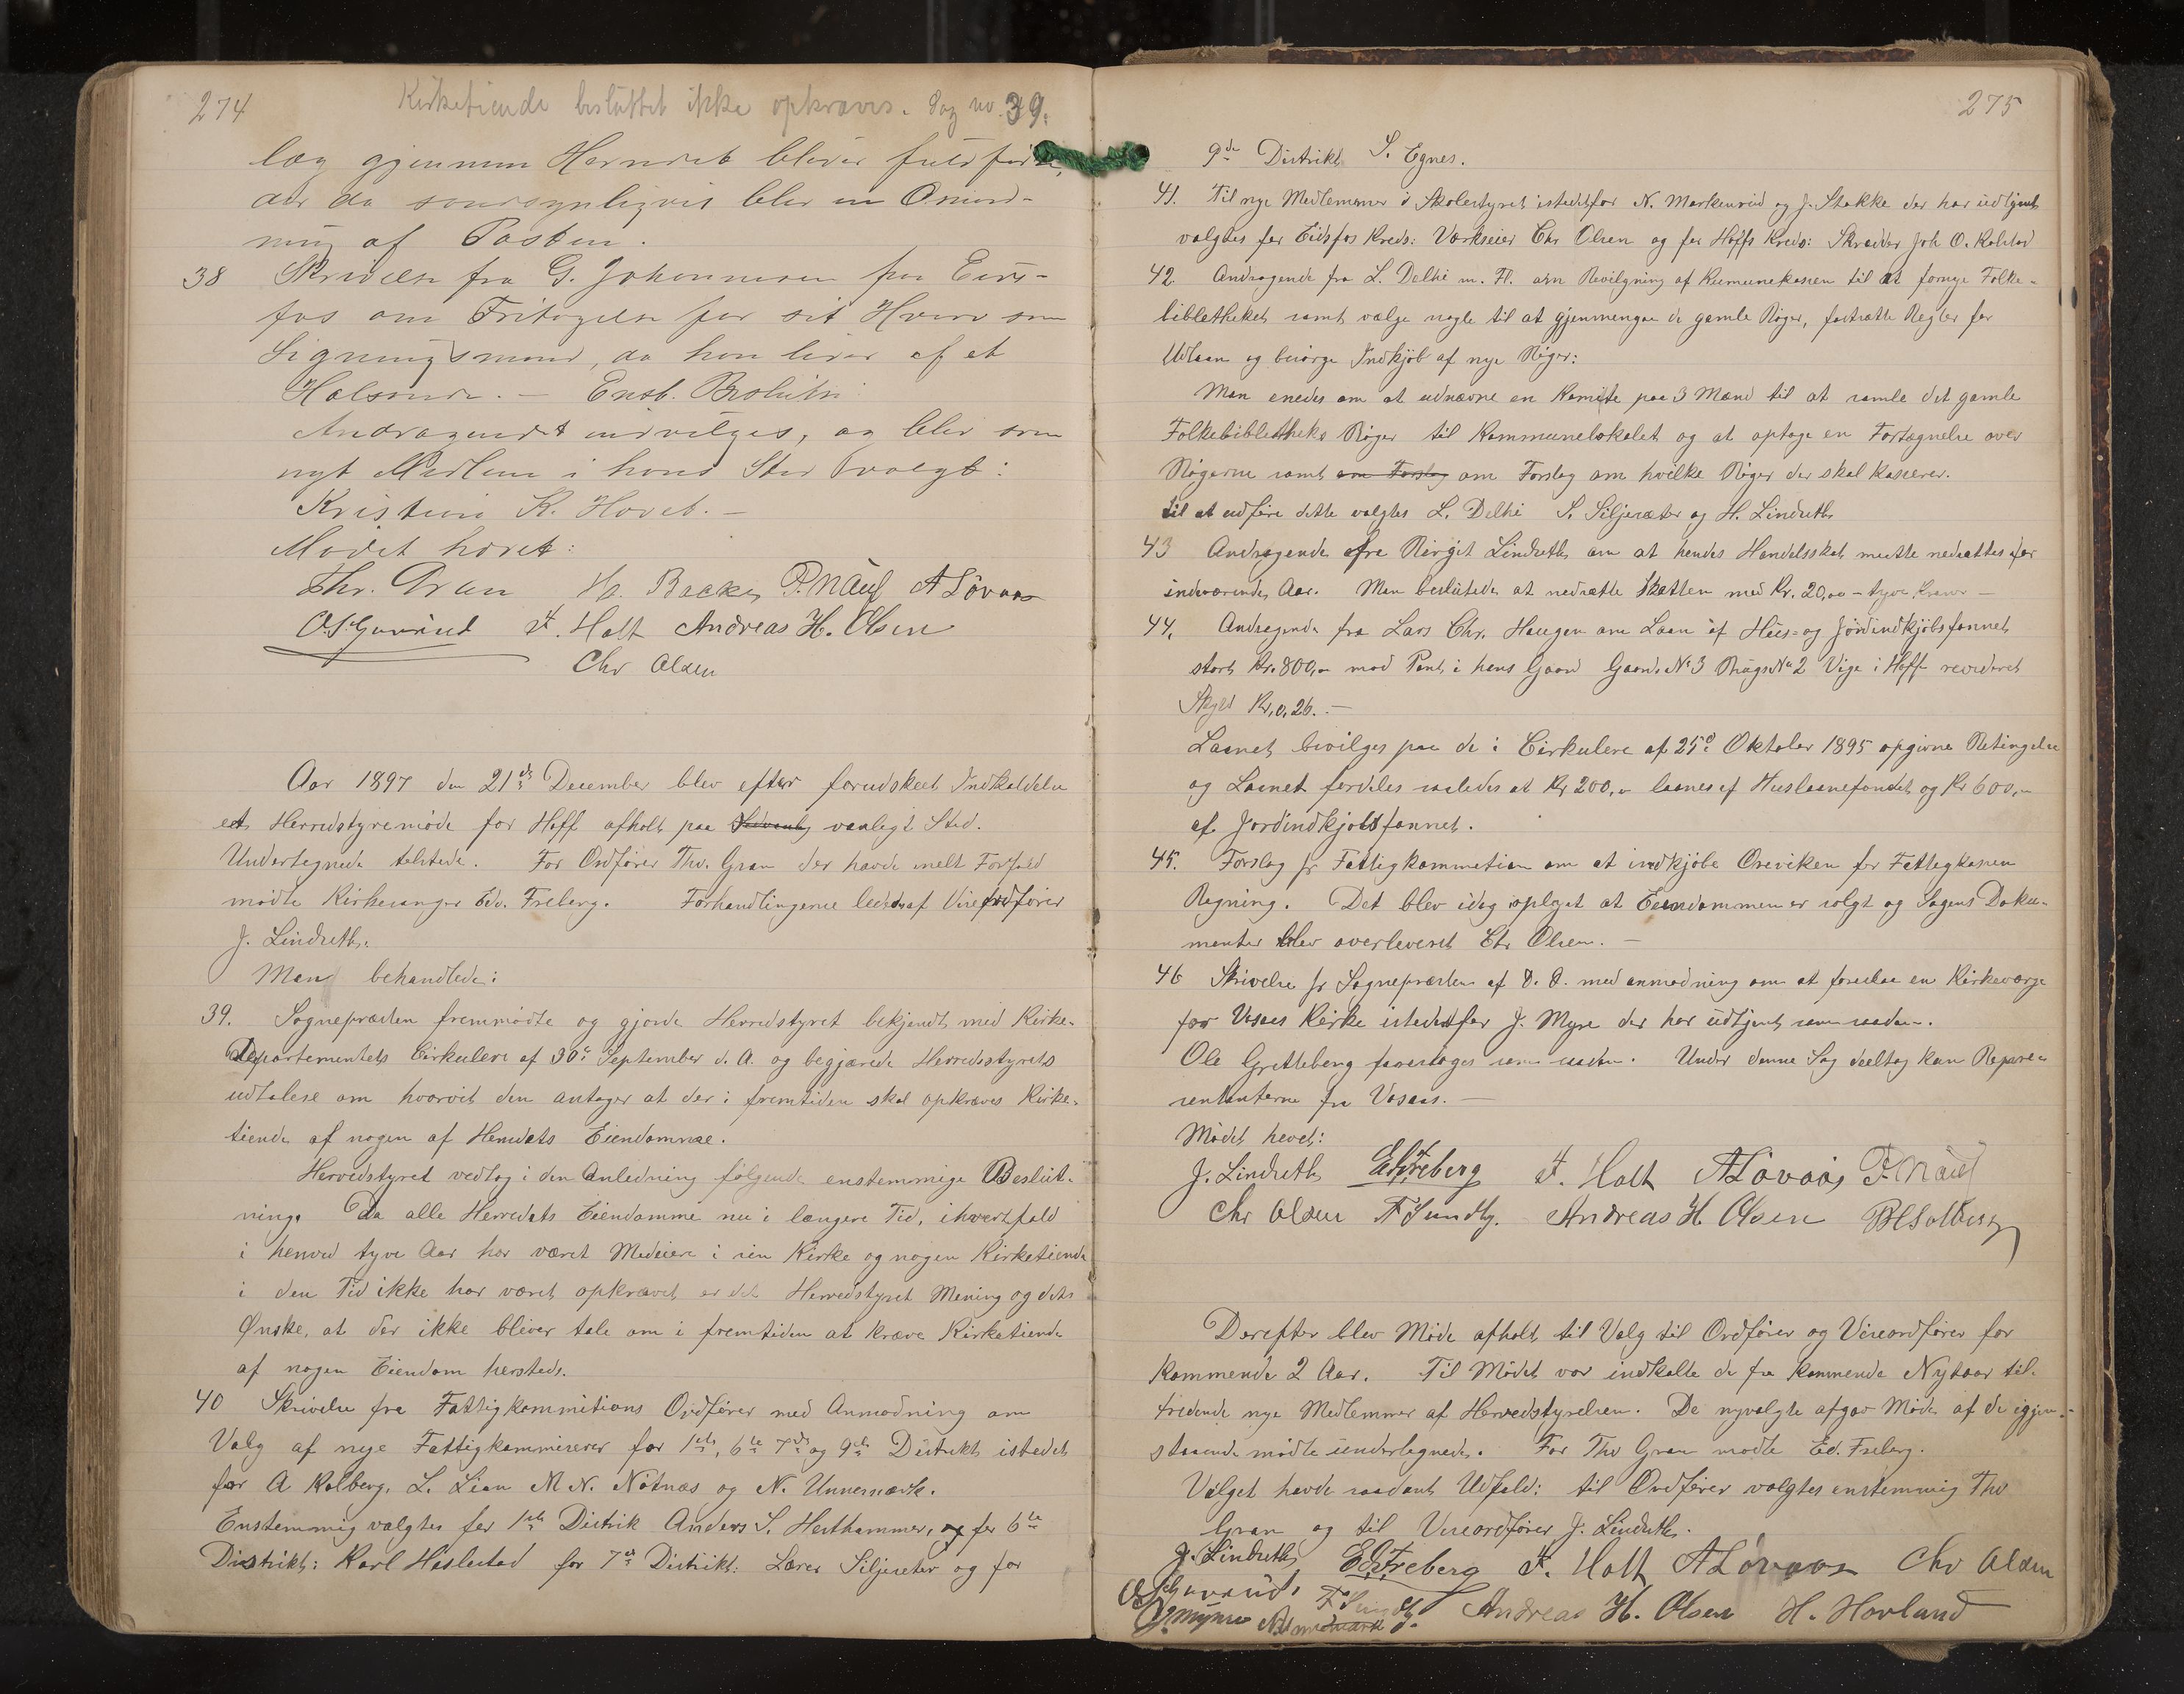 274
Kirketiende besluttet ikke opkræves. Sag no. 39.
læg gjennem Herredet bliver fuldført,
der da sandsynligvis blir en Omord-
ning af Posten.
38 Skrivelse fra G. Johannesen paa Eids-
fos om Fritagelse for sit Hverv som
Ligningsmand, da han lider af et
Halsonde. — Enst. Beslutn:
Andragendet indvilges, og blev som
nyt Medlem i hans Sted valgt:
Kristian K. Hovet. —
Mødet hævet:
Thv. Gran H. Backe P. Nauf A Løvaas
O.S. Gunrud F. Holt Andreas H. Olsen
Chr Olsen
Aar 1897 den 21de December blev efter forudskeet Indkaldelse
et Herredstyremøde for Hoff afholdt paa vanligt Sted.
Undertegnede tilstede. For Ordfører Thv. Gran der havde meldt Forfald
mødte Kirkesanger Edv. Freberg. Forhandlingerne lededes af Viceordfører
J. Lindseth.
Man behandlede:
39. Sognepræsten fremmødte og gjorde Herredstyret bekjendt med Kirke-
Departementets Cirkulære af 30te September d. A. og begjærede Herredsstyrets
udtalese om hvorvidt den antager at der i fremtiden skal opkræves Kirke-
tiende af nogen af Herredets Eiendomme.
Herredstyret vedtog i den Anledning følgende enstemmige Beslut-
ning. Da alle Herredets Eiendomme nu i længere Tid, ihvertfald
i henved tyve Aar har været Medeiere i sin Kirke og nogen Kirketiende
i den Tid ikke har været opkrævet er det Herredstyret Mening og dets
Ønske, at der ikke bliver tale om i fremtiden at kræve Kirketiende
af nogen Eiendom hersteds.
40 Skrivelse fra Fattigkommitions Ordfører med Anmodning om
Valg af nye Fattigkommiserer for 1ste, 6te 7de og 9de Distrikt istedet
for A Kolberg, L. Lian M N. Nøtnæs og N. Unnersværk.
Enstemmig valgtes for 1ste Distrik Anders S. Hesthammer, og for 6te
Distrikt: Karl Haslestad for 7de Distrikt: Lærer Siljesæter og for
275
9de Distrikt S. Egnes.
41. Til nye Medlemmer i Skolestyret istedetfor N. Markerud og J. Stakke der har udtjent
valgtes for Eidsfos Kreds: Værkseier Chr Olsen og for Hoffs Kreds: Skrædder Joh O. Kolstad
42. Andragende fra L. Delhi m. Fl. om Bevilgning af Kumunekassen til at fornye Folke-
bibliotheket samt vælge nogle til at gjennemgaa de gamle Bøger, fastsætte Regler for
Udlaan og besørge Indkjøb af nye Bøger:
Man enedes om at udnævne en Komite paa 3 Mand til at samle det gamle
Folkebibliotheks Bøger til Kommunelokalet og at optage en Fortægnelse over
Bøgerne samt om Forslag om Forslag om hvilke Bøger der skal kasseres.
til at udføre dette valgtes L. Delhi S. Siljesæter og H. Lindseth
43 Andragende fra Birgit Lindseth om at hendes Handelsskat maatte nedsættes for
indværende Aar. Man besluttede at nedsætte Skatten med Kr. 20,00 – tyve Kroner —
44. Andragende fra Lars Chr. Haugen om Laan af Hus- og Jordindkjøbsfonnet
stort Kr. 800,00 mod Pant i hans Gaard Gaards No 3 Brugs No 2 Vige i Hoff revideret
Skyld Kr. 0,26. —
Laanet bevilges paa de i Cirkulære af 25de Oktober 1895 opgivne Betingelser
og Laanet fordeles saaledes at Kr 200,00 laanes af Huslaanefondet og Kr 600,00
af Jordindkjøbsfonnet.
45. Forslag fr Fattigkommission om at indkjøbe Oreviken for Fattigkassen
Regning. Det blev idag oplyst at Eiendommen er solgt og Sagens Doku-
menter blev overleveret Chr Olsen. —
46 Skrivelse fr Sognepræsten af D. D. med anmodning om at foreslaa en Kirkeværge
for Vasaas Kirke istedetfor J. Myre der har udtjent som saadan.
Ole Gretteberg foreslaaes som saadan. Under denne Sag deltog kun Repræ-
sentanterne fra Vasaas. —
Mødet hævet:
J. Lindseth Ed. Freberg F. Holt A Løvaas P. Nauf
Chr Olsen F Sundby. Andreas H Olsen B H Solberg
Derefter blev Møde afholdt til Valg til Ordfører og Viceordfører for
kommende 2 Aar. Til Mødet var indkaldte de fra kommende Nytaar til-
tredende nye Medlemmer af Herredstyrelsen. De nyvalgte afgav Møde af de igjen-
staaende mødte undertegnede. For Thv Gran mødte Ed. Freberg.
Valget havde saadant Udfald: til Ordfører valgtes enstemmig Thv
Gran og til Viceordfører J. Lindseth.
J. Lindseth Ed. Freberg F. Holt A Løvaas Chr Olsen
O S Gunrud F Sundby. Andreas H. Olsen H. Hovland
J. Myhre